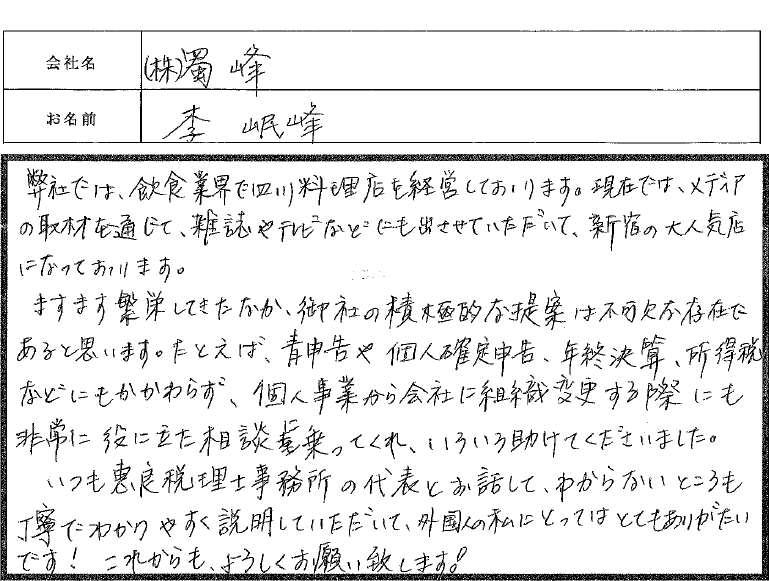 会社名
(株)蜀峰
お名前
李 岷峰
弊社では、飲食業界で四川料理店を経営しております。現在では、メディア
の取材を通じて、雑誌やテレビなどにも出させていただいて、新宿の大人気店
になっております。
ますます繁栄してきたなか、御社の積極的な提案は不可欠な存在で
あると思います。たとえば、青申告や個人確定申告、年終決算、所得税
などにもかかわらず、個人事業から会社に組織変更する際にも
非常に役に立た相談乗ってくれ、いろいろ助けてくださいました。
いつも恵良税理士事務所の代表とお話して、わからないところも
丁寧でわかりやすく説明していただいて、外国人の私にとってはとてもありがたい
です！これからも、よろしくお願い致します。